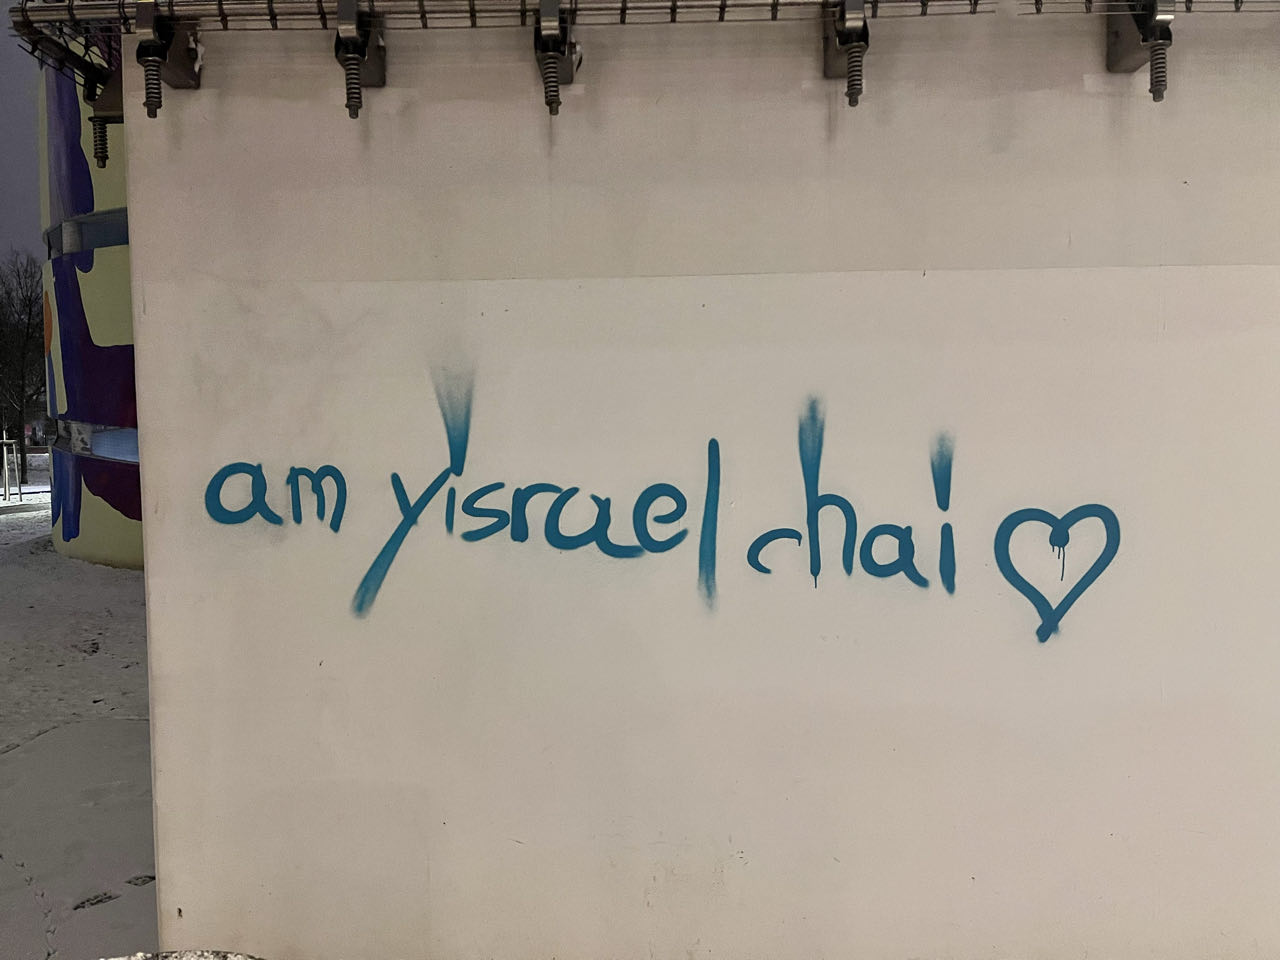 am yisrael chai ♡